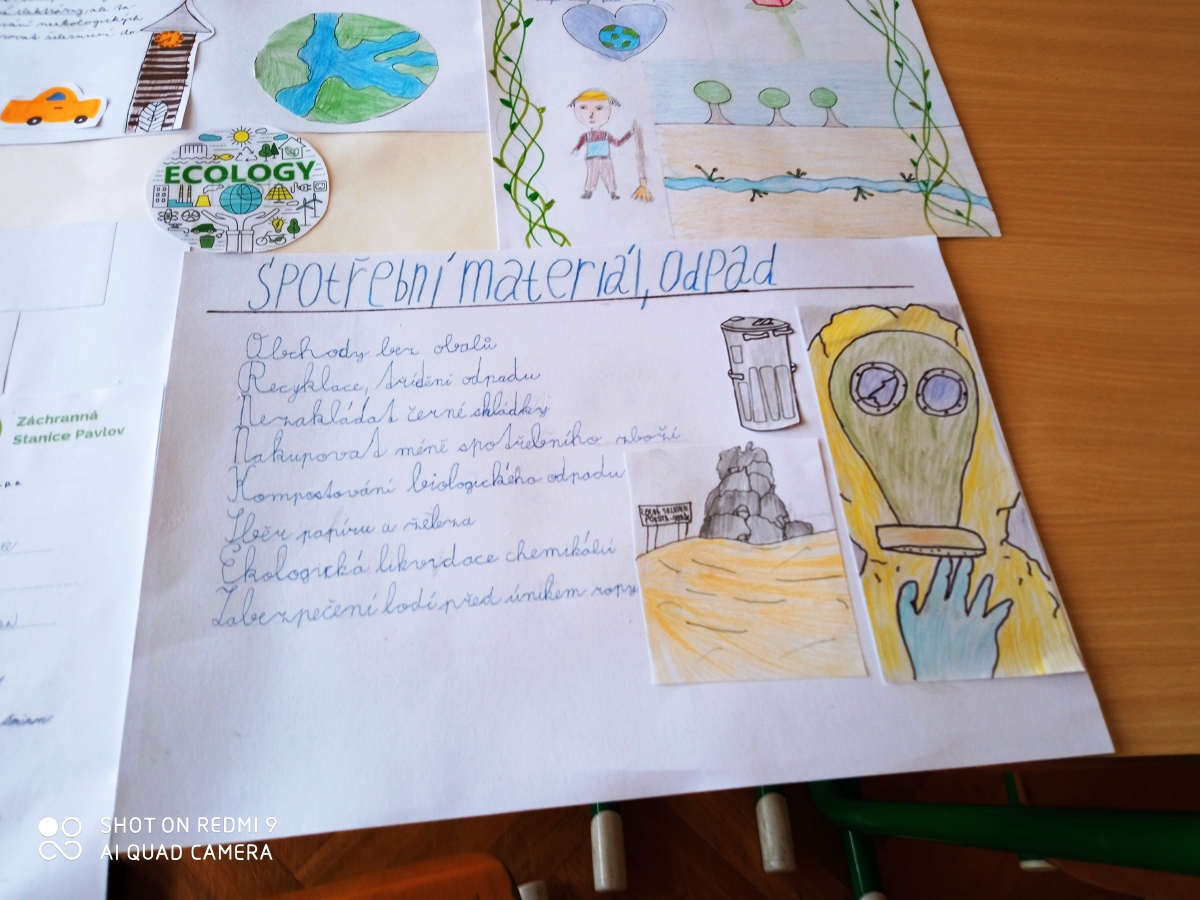 ECOLOGY
Spotřební materiál, odpad
Obchody bez obalů
Recyklace, třídění odpadu
Nezakládat černé skládky
Nakupovat méně spotřebního zboží
Kompostování biologického odpadu
Sběr papíru a železa
Ekologická likvidace chemikálií
Zabezpečení lodí před únikem ropy
Záchranná
Stanice Pavlov
SHOT ON REDMI 9
AI QUAD CAMERA